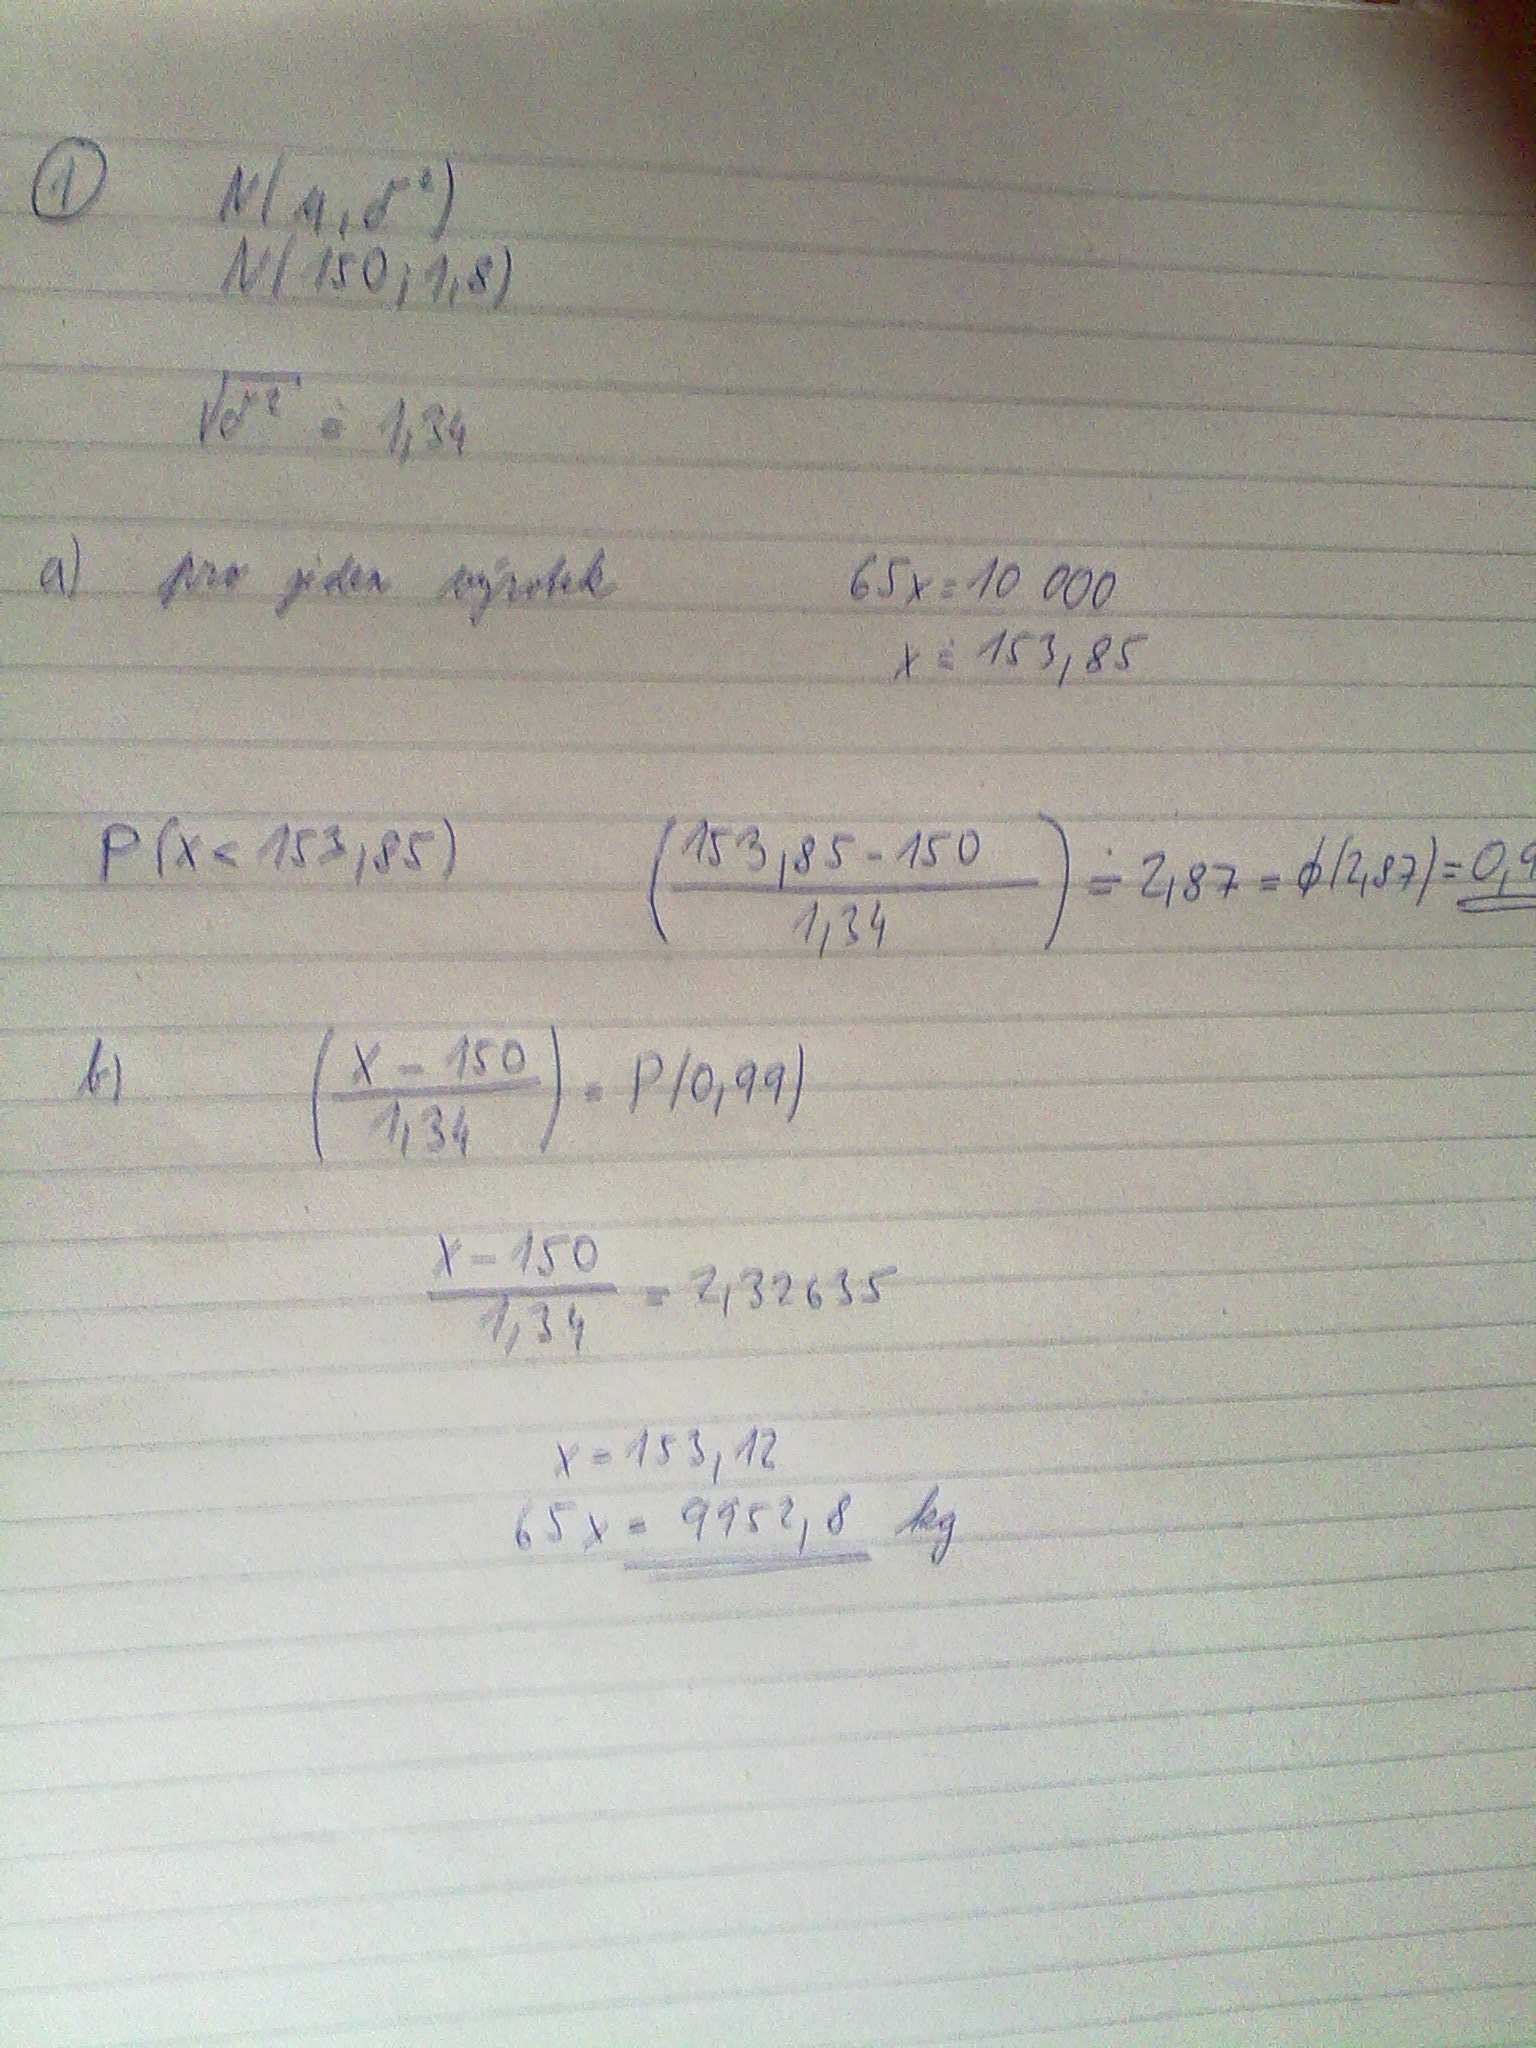 1
N(μ, σ²)
N(150; 1,8)
√σ² ≐ 1,34
a) pro jeden výrobek 65x = 10 000
x ≐ 153,85
P(x < 153,85) (153,85 - 150 / 1,34) ≐ 2,87 = ϕ(2,87) = 0,9
b) (x - 150 / 1,34) = P(0,99)
x - 150 / 1,34 = 2,32635
x = 153,12
65x = 9952,8 kg